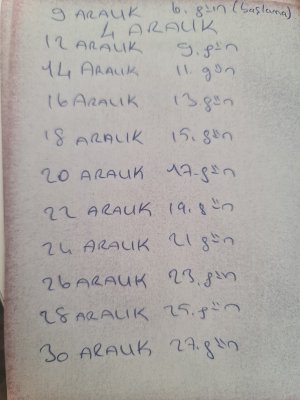 9 ARALIK 6. gün (başlama)
4 ARALIK
12 ARALIK 9. gün
14 ARALIK 11. gün
16 ARALIK 13. gün
18 ARALIK 15. gün
20 ARALIK 17. gün
22 ARALIK 19. gün
24 ARALIK 21 gün
26 ARALIK 23. gün
28 ARALIK 25. gün
30 ARALIK 27. gün